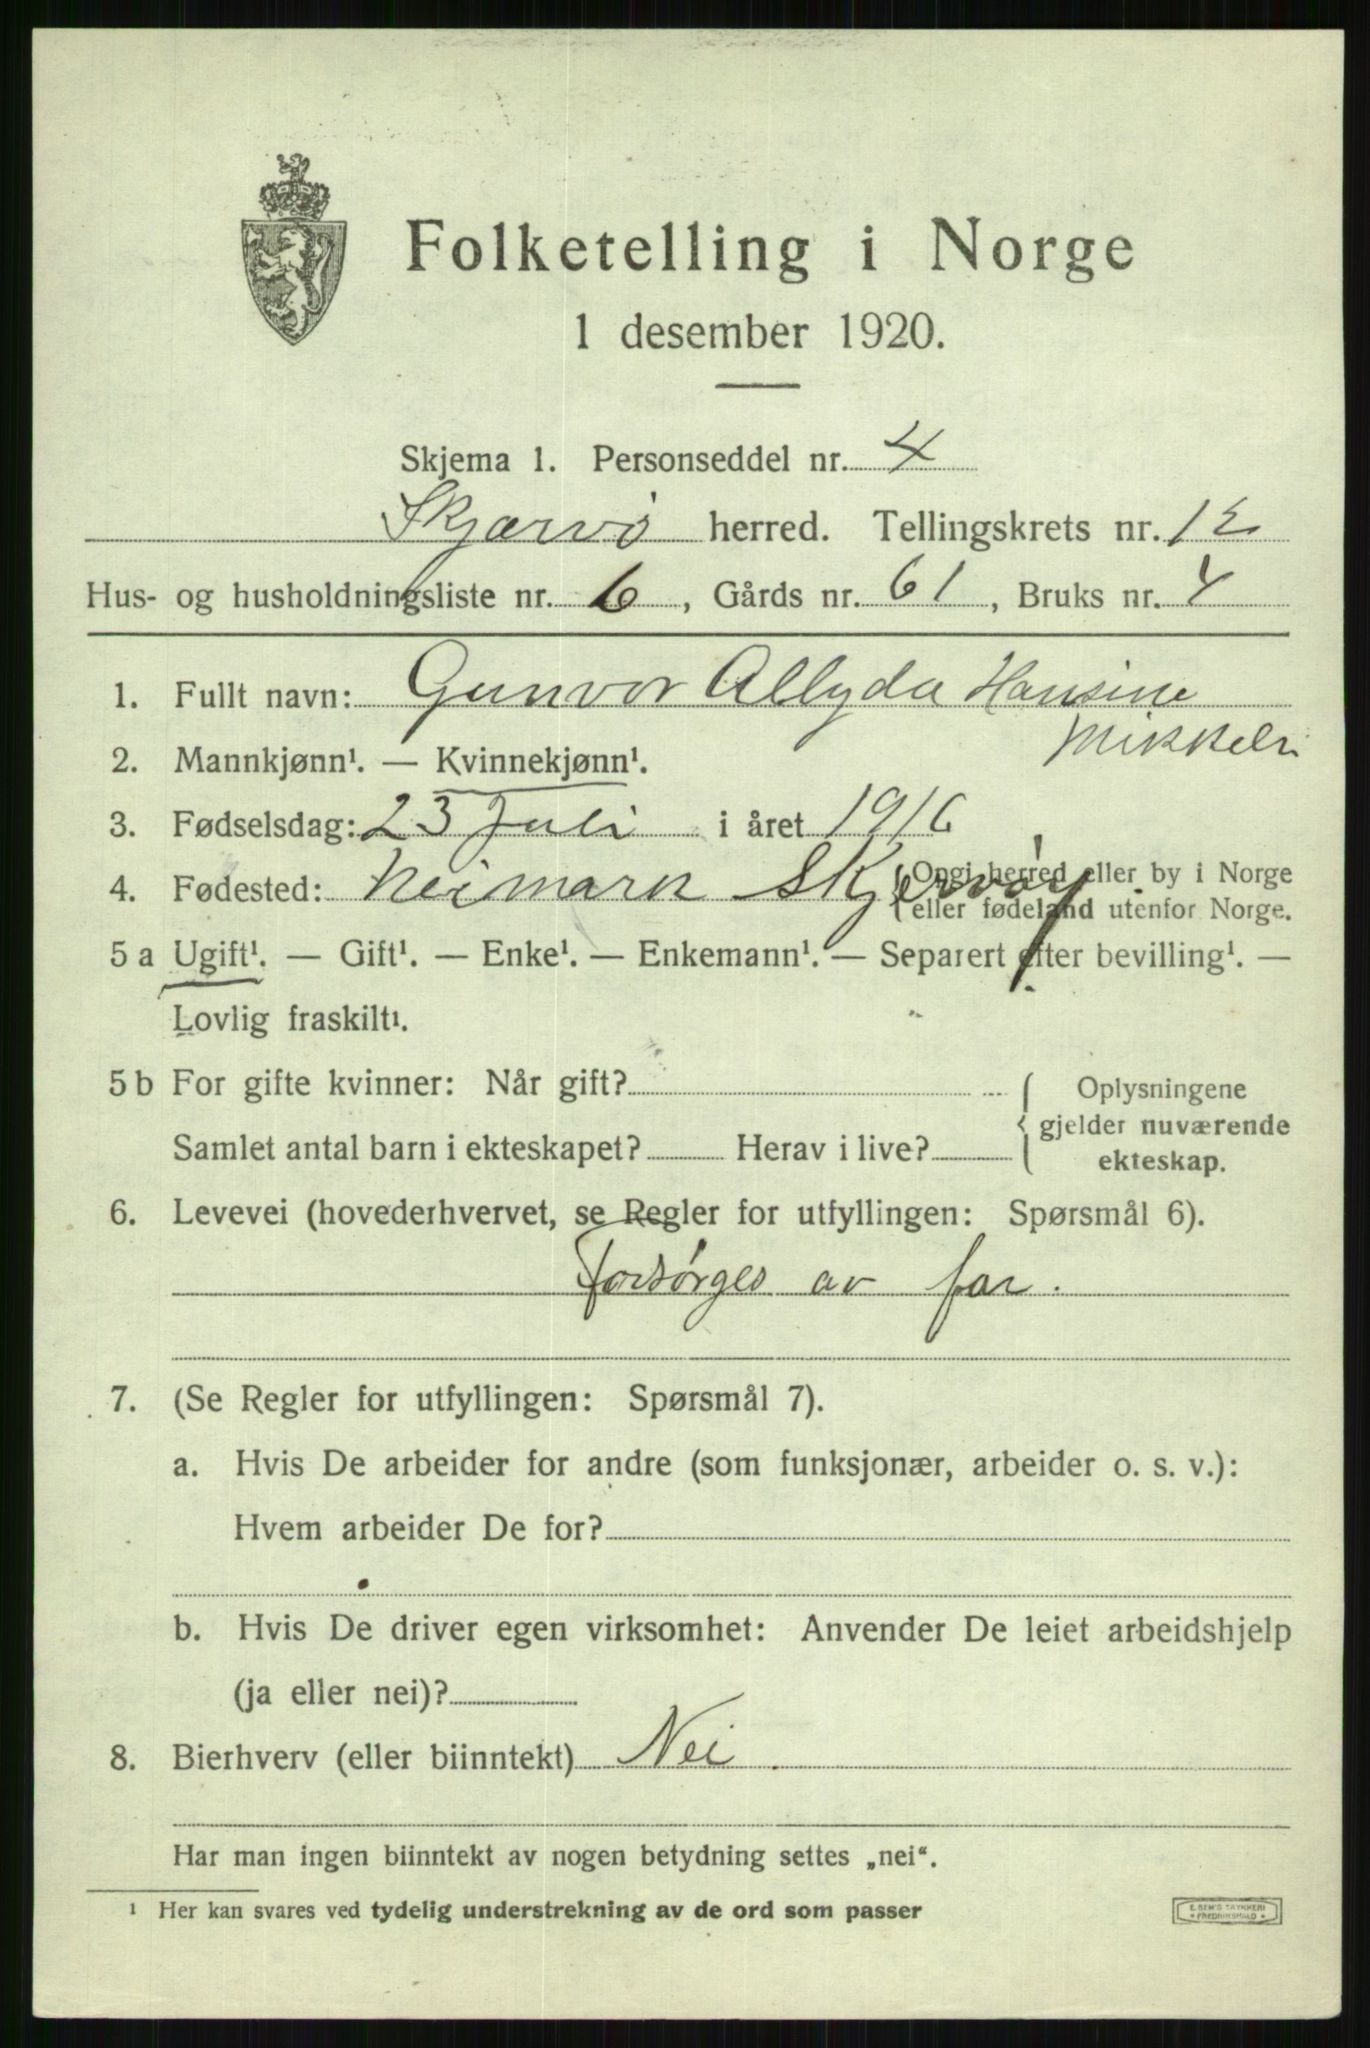 Folketelling i Norge
1 desember 1920.
Skjema 1. Personseddel nr. 4
Skjærvö herred. Tellingskrets nr. 12
Hus- og husholdningsliste nr. 6, Gårds nr. 61, Bruks nr. 4
1. Fullt navn: Gunvor Allyda Hansine
Mikkels
2. Mannkjønn¹. — Kvinnekjønn¹.
3. Fødselsdag: 23 Juli i året 1916
4. Fødested: Neimark Skjervøy. Opgi herred eller by i Norge
eller fødeland utenfor Norge.
5 a Ugift¹. — Gift¹. — Enke¹. — Enkemann¹. — Separert efter bevilling¹. —
Lovlig fraskilt¹.
5 b For gifte kvinner: Når gift?
Samlet antal barn i ekteskapet? Herav i live?
Oplysningene
gjelder nuværende
ekteskap.
6. Levevei (hovederhvervet, se Regler for utfyllingen: Spørsmål 6).
Forsørges av far.
7. (Se Regler for utfyllingen: Spørsmål 7).
a. Hvis De arbeider for andre (som funksjonær, arbeider o. s. v.):
Hvem arbeider De for?
b. Hvis De driver egen virksomhet: Anvender De leiet arbeidshjelp
(ja eller nei)?
8. Bierhverv (eller biinntekt) Nei.
Har man ingen biinntekt av nogen betydning settes „nei“.
¹ Her kan svares ved tydelig understrekning av de ord som passer
E. SEM'S TRYKKERI
FREDRIKSHALD